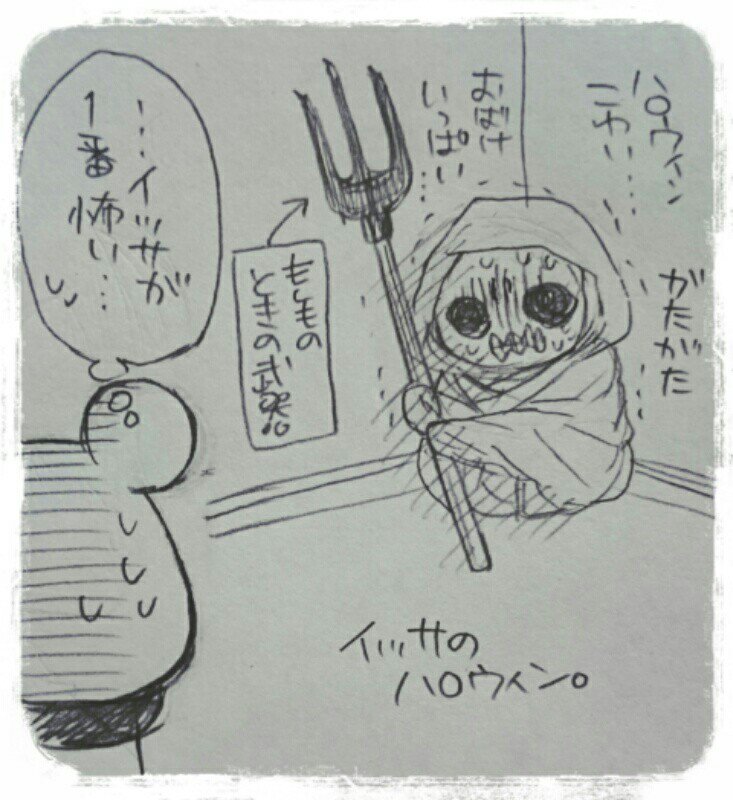 ハロウィン
こわい…
おばけ
いっぱい…
がたがた
もしもの
ときの武器。
…イッサが
1番怖い…
イッサの
ハロウィン。